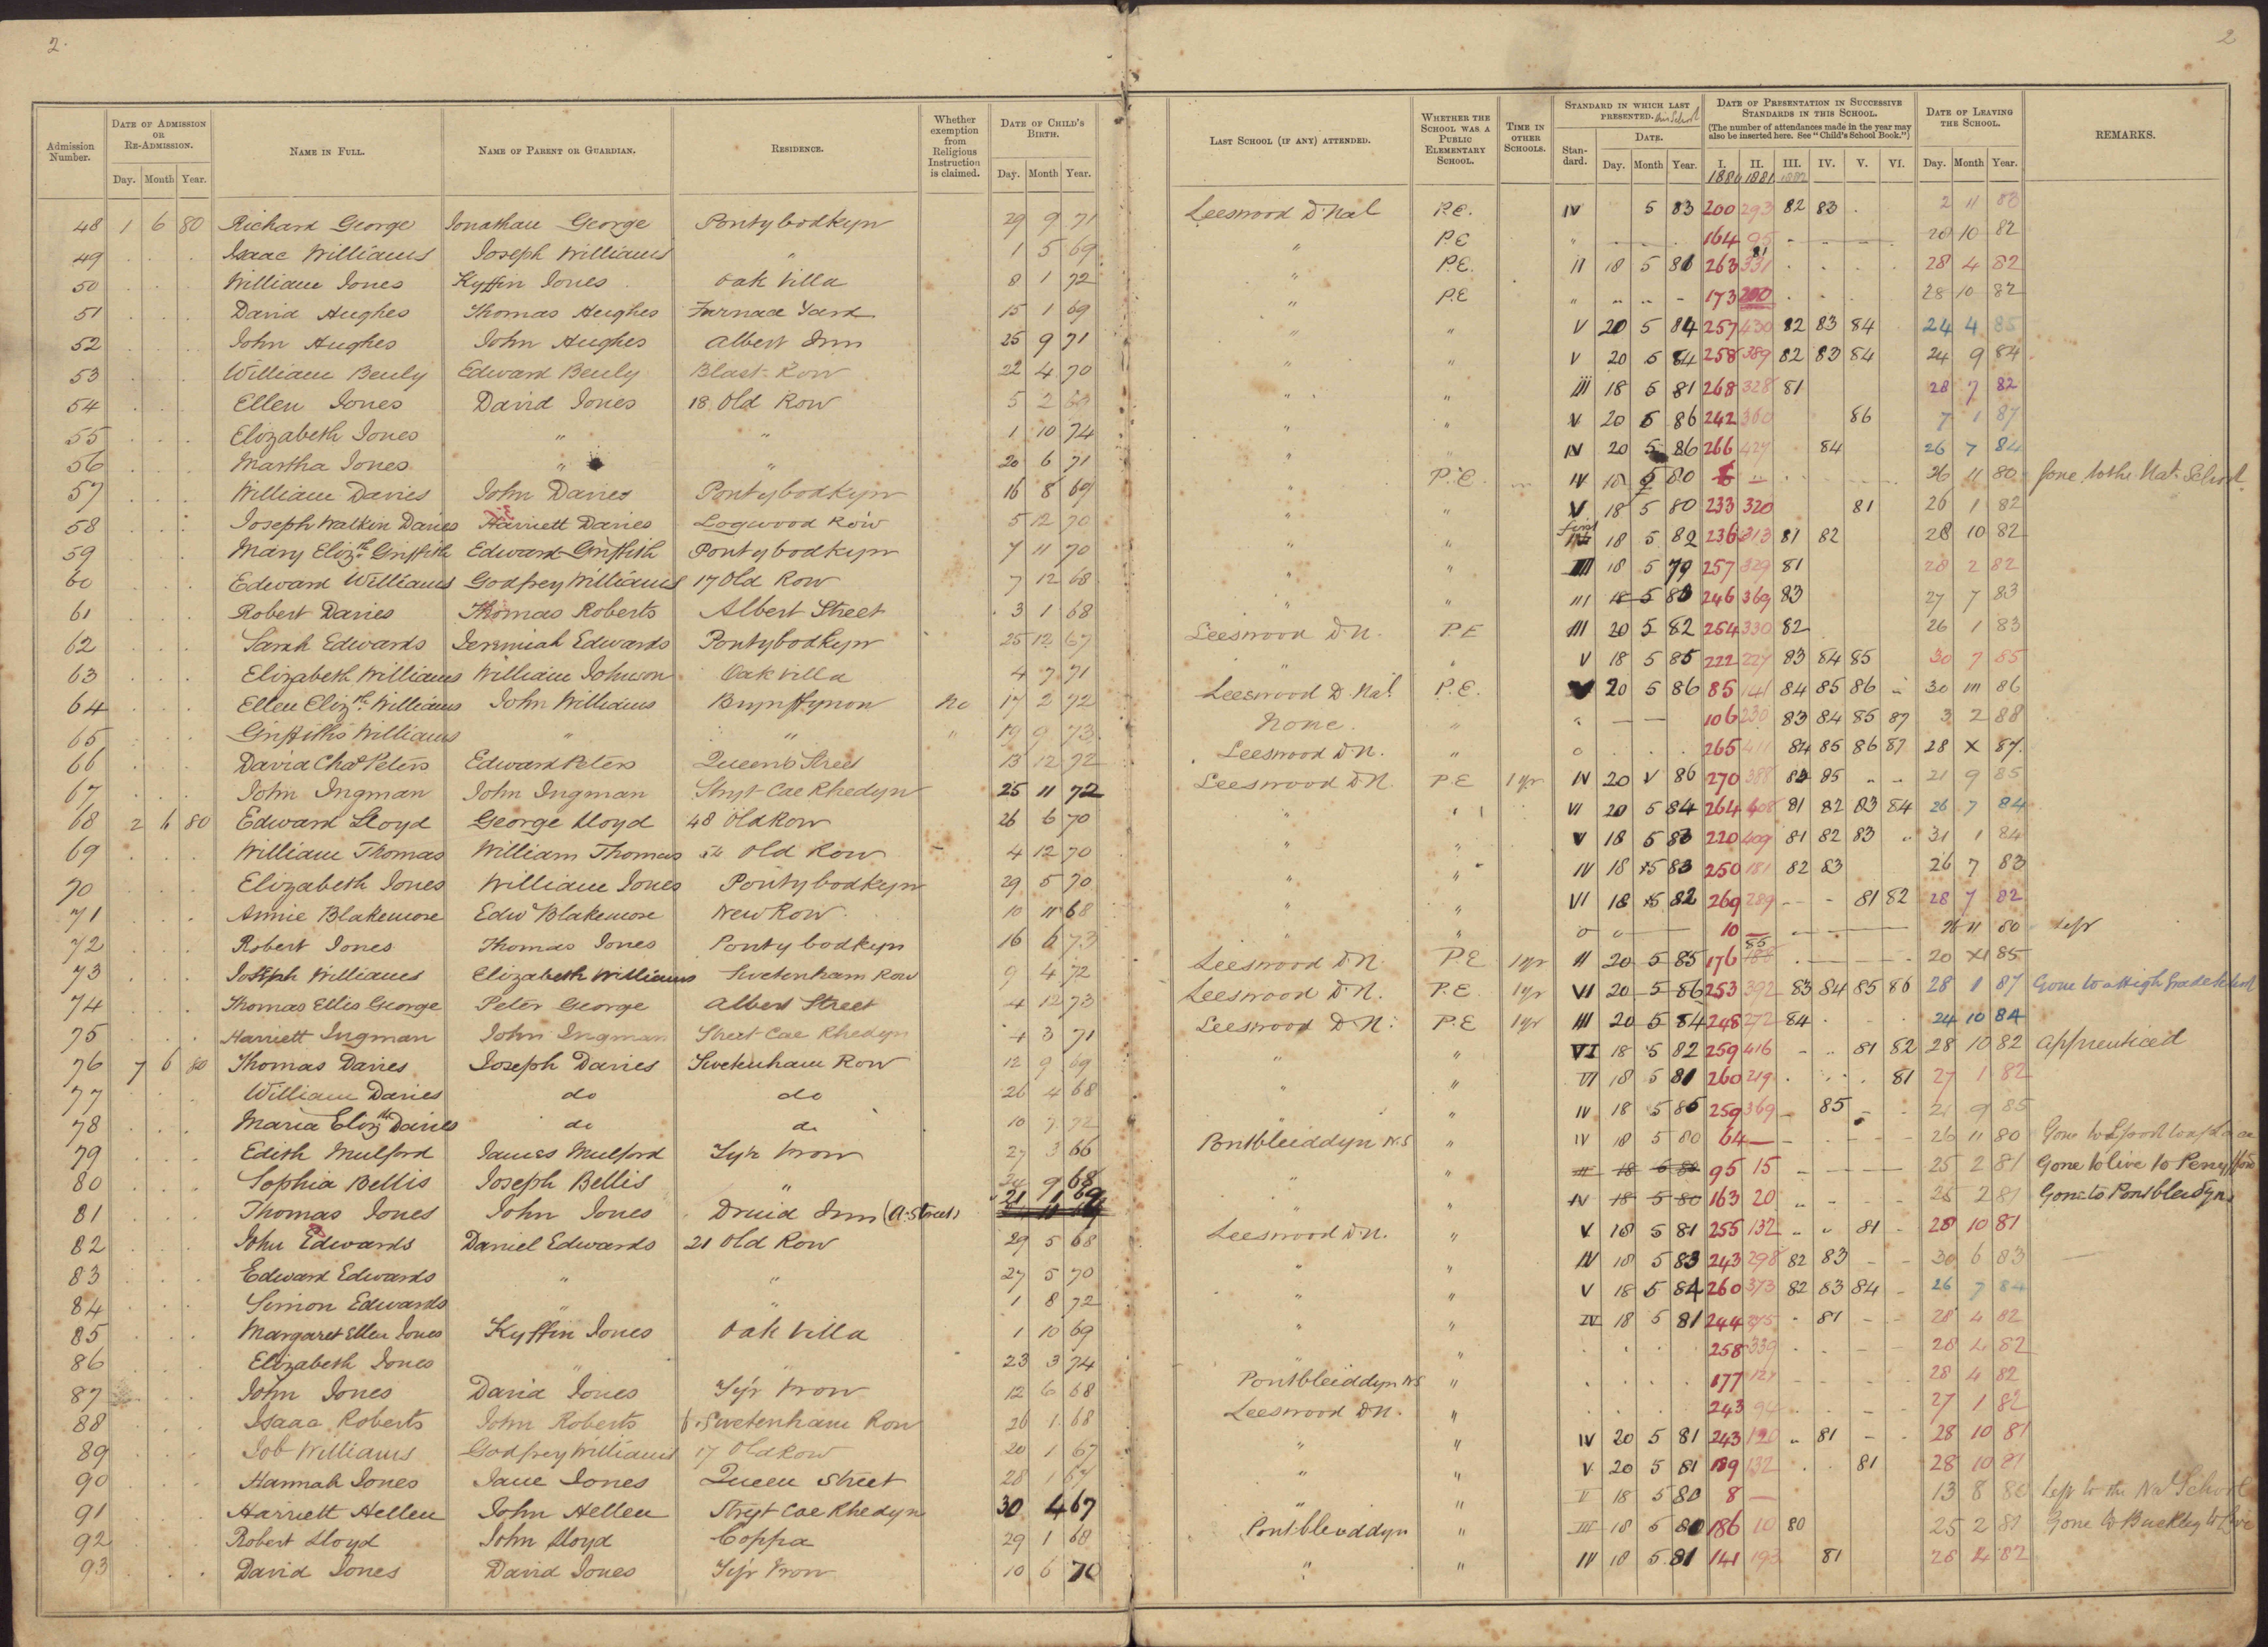 2.
2
Admission Number.
DATE OF ADMISSION OR RE-ADMISSION.
Day. Month Year.
NAME IN FULL.
NAME OF PARENT OR GUARDIAN.
RESIDENCE.
Whether exemption from Religious Instruction is claimed.
DATE OF CHILD'S BIRTH.
Day. Month Year.
LAST SCHOOL (IF ANY) ATTENDED.
WHETHER THE SCHOOL WAS A PUBLIC ELEMENTARY SCHOOL.
TIME IN OTHER SCHOOLS.
STANDARD IN WHICH LAST PRESENTED. this School
Standard. DATE. Day. Month Year.
DATE OF PRESENTATION IN SUCCESSIVE STANDARDS IN THIS SCHOOL.
(The number of attendances made in the year may also be inserted here. See "Child's School Book.")
I. II. III. IV. V. VI.
1880 1881 1882
DATE OF LEAVING THE SCHOOL.
Day. Month Year.
REMARKS.
48 1 6 80 Richard George Jonathan George Pontybodkyn 29 9 71 Leeswood D. Nal P.E. IV 5 83 200 293 82 83 2 11 83
49 Isaac Williams Joseph Williams " 1 5 69 " P.E " 164 95 20 10 82
50 William Jones Kyffin Jones Oak Villa 8 1 72 " P.E. II 18 5 81 263 331 28 4 82
51 David Hughes Thomas Hughes Furnace Yard 15 1 69 " P.E " 173 200 28 10 82
52 John Hughes John Hughes Albert Inn 25 9 71 " " V 20 5 84 257 430 82 83 84 24 4 85
53 William Beuly Edward Beuly Blast Row 22 4 70 " " V 20 5 84 258 389 82 83 84 24 9 84
54 Ellen Jones David Jones 18 Old Row 5 2 69 " " III 18 5 81 268 328 81 28 7 82
55 Elizabeth Jones " " 1 10 74 " " V 20 5 86 242 360 86 7 1 87
56 Martha Jones " " 20 6 71 " " IV 20 5 86 266 427 84 26 7 84
57 William Davies John Davies Pontybodkyn 16 8 69 " P.E. IV 18 5 80 26 11 80 Gone to the Nat. School
58 Joseph Watkin Davies Harriett Davies Logwood Row 5 12 70 " " V 18 5 80 233 320 81 26 1 82
59 Mary Elizth Griffith Edward Griffith Pontybodkyn 7 11 70 " " 18 5 82 236 313 81 82 28 10 82
60 Edward Williams Godfrey Williams 17 Old Row 7 12 68 " " III 18 5 79 257 329 81 28 2 82
61 Robert Davies Thomas Roberts Albert Street 3 1 68 " " III 18 5 83 246 369 83 27 7 83
62 Sarah Edwards Jeremiah Edwards Pontybodkyn 25 12 67 Leeswood D.N. P.E III 20 5 82 254 330 82 26 1 83
63 Elizabeth Williams William Johnson Oak Villa 4 7 71 " " V 18 5 85 222 227 83 84 85 30 7 85
64 Ellen Elizth Williams John Williams Brynffynon No 17 2 72 Leeswood D. Nal P.E. V 20 5 86 85 141 84 85 86 30 III 86
65 Griffiths Williams " " " 19 9 73 None. " 106 230 83 84 85 87 3 2 88
66 David Chas Peters Edward Peters Queen's Street 13 12 72 Leeswood D.N. " 0 265 411 84 85 86 87 28 X 87
67 John Ingman John Ingman Stryt Cae Rhedyn 25 11 72 Leeswood D.N. P.E 1 yr IV 20 V 86 270 388 84 85 21 9 85
68 2 6 80 Edward Lloyd George Lloyd 48 Old Row 26 6 70 " VI 20 5 84 264 408 81 82 83 84 26 7 84
69 William Thomas William Thomas Old Row 4 12 70 " " V 18 5 83 220 409 81 82 83 31 1 84
70 Elizabeth Jones William Jones Pontybodkyn 29 5 70 " " IV 18 5 83 250 181 82 83 26 7 83
71 Annie Blakemore Edwd Blakemore New Row 10 11 68 " " VI 18 5 82 269 289 81 82 28 7 82
72 Robert Jones Thomas Jones Pontybodkyn 16 6 73 " " 0 0 10 26 11 80 Left
73 Joseph Williams Elizabeth Williams Swetenham Row 9 4 72 Leeswood D.N P.E 1 yr II 20 5 85 176 85 20 XI 85
74 Thomas Ellis George Peter George Albert Street 4 12 73 Leeswood D.N. P.E. 1 yr VI 20 5 86 253 392 83 84 85 86 28 1 87 Gone to a High Grade School
75 Harriett Ingman John Ingman Street Cae Rhedyn 4 3 71 Leeswood D.N. P.E 1 yr III 20 5 84 248 272 84 24 10 84
76 7 6 80 Thomas Davies Joseph Davies Swetenham Row 12 9 69 " " VI 18 5 82 259 416 81 82 28 10 82 Apprenticed
77 William Davies do do 26 4 68 " " VI 18 5 81 260 219 81 27 1 82
78 Maria Elizth Davies do do 10 7 72 " " IV 18 5 85 259 369 85 9 85
79 Edith Mulford James Mulford Tyr Fron 27 3 66 Pontbleiddyn N.S " IV 18 5 80 64 26 11 80
80 Sophia Bellis Joseph Bellis " 24 9 68 " " 18 5 80 95 15 25 2 81 Gone to live to Penyffordd
81 Thomas Jones John Jones Druid Inn (A. Street) 21 1 69 " " IV 18 5 80 163 20 25 2 81 Gone to Pontbleidyn
82 John Edwards Daniel Edwards 21 Old Row 29 5 68 Leeswood D.N. " V 18 5 81 255 132 81 28 10 81
83 Edward Edwards " " 27 5 70 " " IV 18 5 83 243 298 82 83 30 6 83
84 Simon Edwards " " 1 8 72 " " V 18 5 84 260 373 82 83 84 26 7 84
85 Margaret Ellen Jones Kyffin Jones Oak Villa 1 10 69 " " IV 18 5 81 244 375 81 28 4 82
86 Elizabeth Jones " " 23 3 74 " " 258 339 28 4 82
87 John Jones David Jones Tyr Fron 12 6 68 Pontbleiddyn N.S " 177 127 28 4 82
88 Isaac Roberts John Roberts 6 Swetenham Row 26 1 68 Leeswood D.N. " 243 94 27 1 82
89 Job Williams Godfrey Williams 17 Old Row 20 1 67 " " IV 20 5 81 243 120 81 28 10 81
90 Hannah Jones Jane Jones Queen Street 28 1 67 " " V 20 5 81 189 132 81 28 10 81
91 Harriett Hellen John Hellen Stryt Cae Rhedyn 30 4 67 " " V 18 5 80 8 13 8 80 Left to the Nat School
92 Robert Lloyd John Lloyd Coppa 29 1 68 Pontbleuddyn " III 18 5 80 186 10 80 25 2 81 Gone to Buckley to live
93 David Jones David Jones Tyr Fron 10 6 70 " " IV 18 5 81 141 193 81 28 4 82